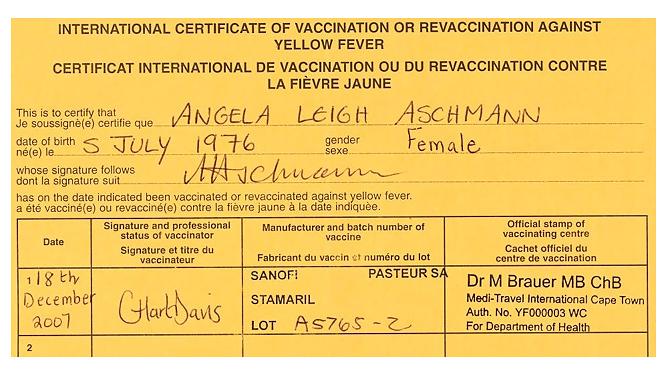 INTERNATIONAL CERTIFICATE OF VACCINATION OR REVACCINATION AGAINST
YELLOW FEVER
CERTIFICAT INTERNATIONAL DE VACCINATION OU DU REVACCINATION CONTRE
LA FIÈVRE JAUNE
This is to certify that
Je soussigné(e) certifie que ANGELA LEIGH ASCHMANN
date of birth gender
né(e) le 5 JULY 1976 sexe Female
whose signature follows
dont la signature suit AAschmann
has on the date indicated been vaccinated or revaccinated against yellow fever.
a été vacciné(e) ou revacciné(e) contre la fièvre jaune à la date indiquée.
Date
Signature and professional
status of vaccinator
Signature et titre du
vaccinateur
Manufacturer and batch number of
vaccine
Fabricant du vaccin et numéro du lot
Official stamp of
vaccinating centre
Cachet officiel du
centre de vaccination
1 18th
December
2007
CHartDavis
SANOFI PASTEUR SA
STAMARIL
LOT A5765-2
Dr M Brauer MB ChB
Medi-Travel International Cape Town
Auth. No. YF000003 WC
For Department of Health
2